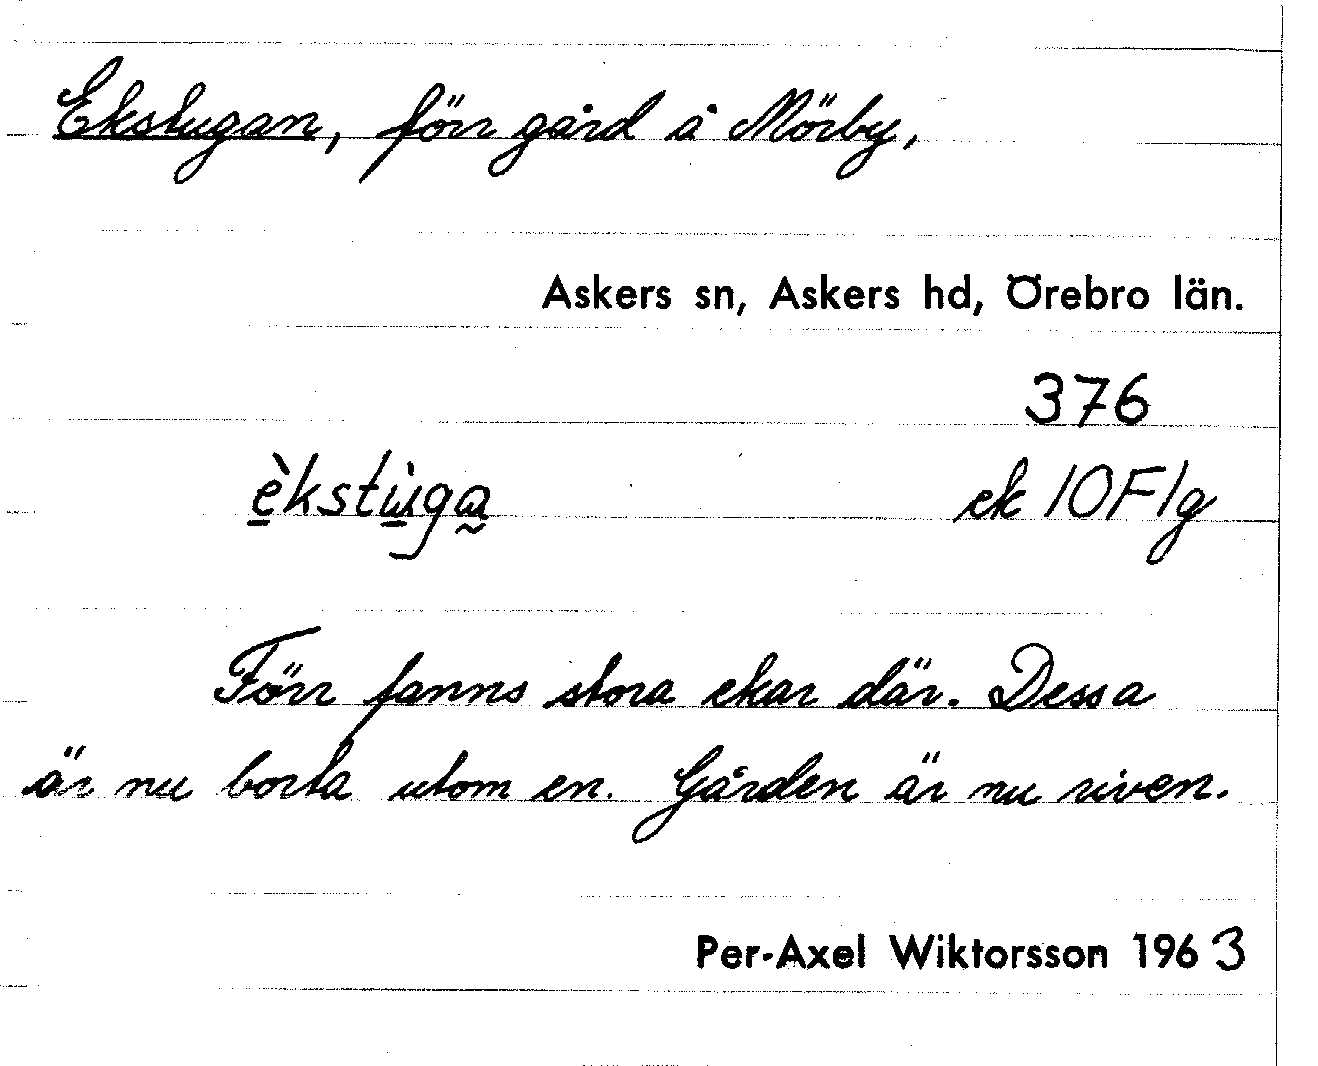 Ekstugan, förr gård å Mörby,
Askers sn, Askers hd, Örebro län.
376
èkstùga ek 10F1g
Förr fanns stora ekar där. Dessa
är nu borta utom en. Gården är nu riven.
Per-Axel Wiktorsson 1963